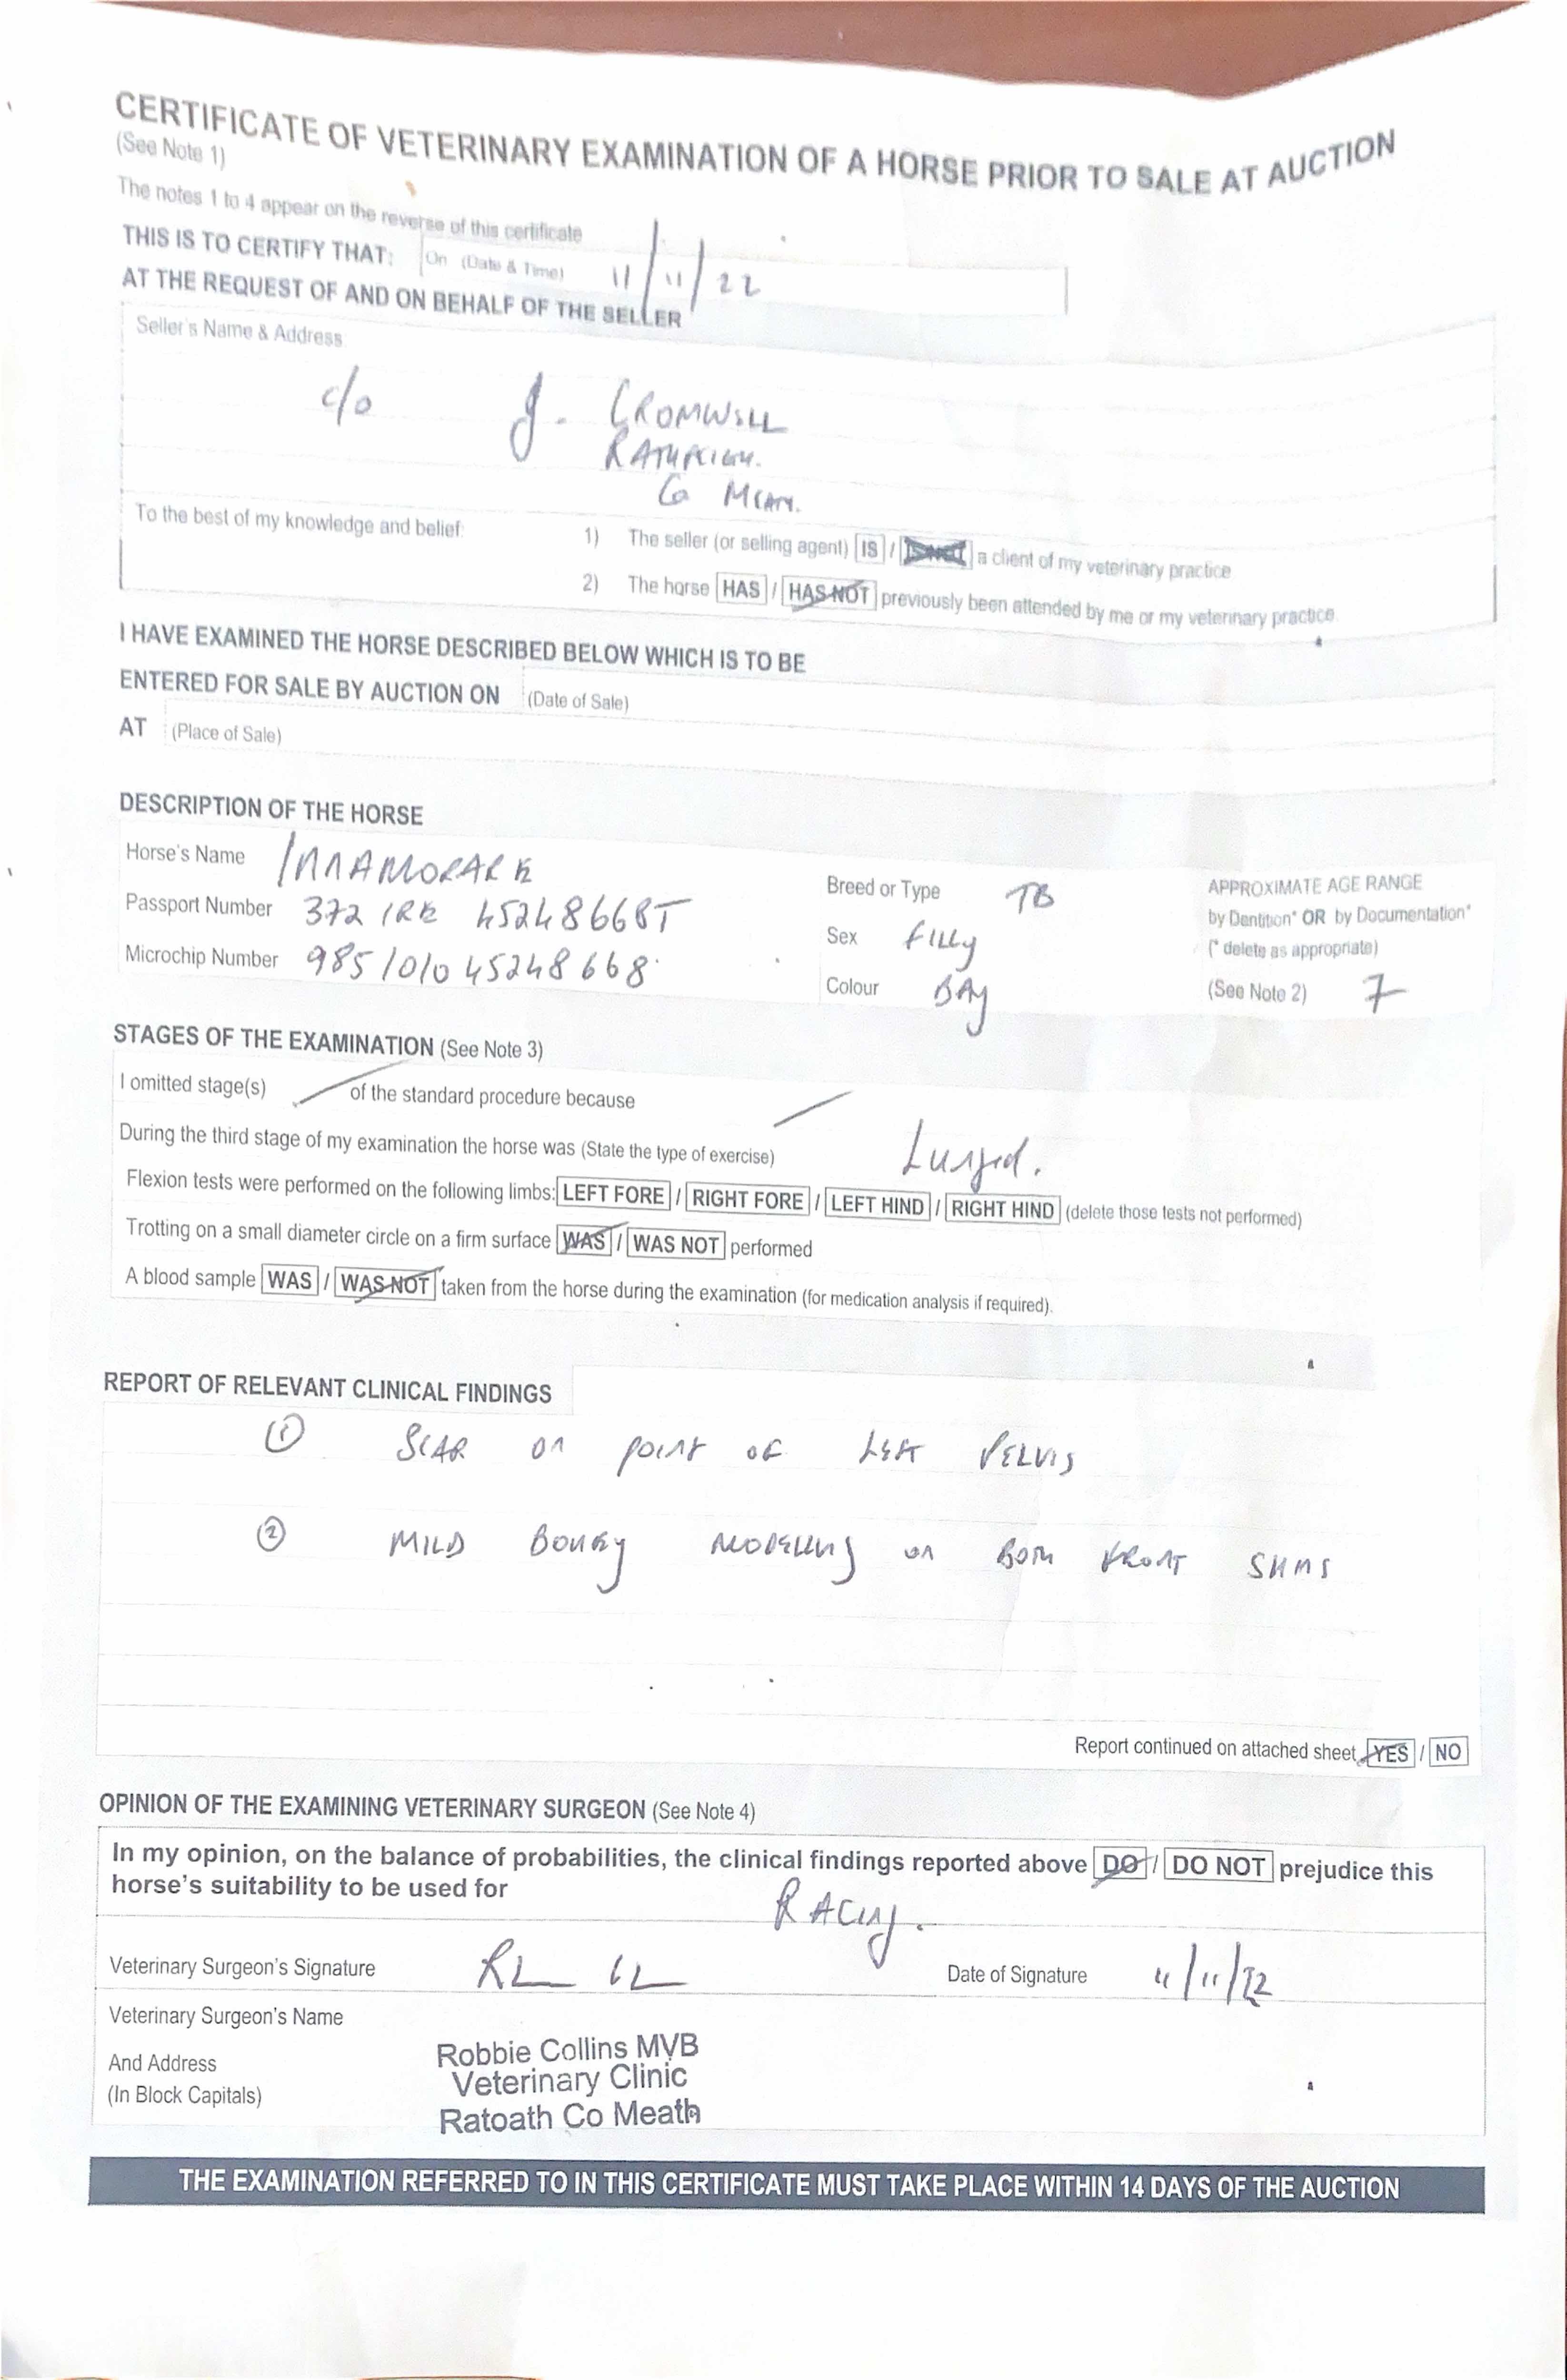 CERTIFICATE OF VETERINARY EXAMINATION OF A HORSE PRIOR TO SALE AT AUCTION
(See Note 1)
The notes 1 to 4 appear on the reverse of this certificate
THIS IS TO CERTIFY THAT: On (Date & Time) 11/11/22
AT THE REQUEST OF AND ON BEHALF OF THE SELLER
Seller's Name & Address
c/o J. CROMWELL
Co MEATH.
To the best of my knowledge and belief: 1) The seller (or selling agent) IS / IS NOT a client of my veterinary practice
2) The horse HAS / HAS NOT previously been attended by me or my veterinary practice.
I HAVE EXAMINED THE HORSE DESCRIBED BELOW WHICH IS TO BE
ENTERED FOR SALE BY AUCTION ON (Date of Sale)
AT (Place of Sale)
DESCRIPTION OF THE HORSE
Horse's Name
Passport Number 372 IRE 45248668T
Microchip Number 985101045248668
Breed or Type TB
Sex FILLY
Colour BAY
APPROXIMATE AGE RANGE
by Dentition* OR by Documentation*
(* delete as appropriate)
(See Note 2) 7
STAGES OF THE EXAMINATION (See Note 3)
I omitted stage(s) / of the standard procedure because /
During the third stage of my examination the horse was (State the type of exercise) Lunged.
Flexion tests were performed on the following limbs: LEFT FORE / RIGHT FORE / LEFT HIND / RIGHT HIND (delete those tests not performed)
Trotting on a small diameter circle on a firm surface WAS / WAS NOT performed
A blood sample WAS / WAS NOT taken from the horse during the examination (for medication analysis if required).
REPORT OF RELEVANT CLINICAL FINDINGS
① SCAR ON POINT OF LEFT PELVIS
② MILD BONEY MODELLING ON BOTH FRONT SHINS
Report continued on attached sheet YES / NO
OPINION OF THE EXAMINING VETERINARY SURGEON (See Note 4)
In my opinion, on the balance of probabilities, the clinical findings reported above DO / DO NOT prejudice this
horse's suitability to be used for RACING.
Veterinary Surgeon's Signature
Date of Signature 11/11/22
Veterinary Surgeon's Name
And Address
(In Block Capitals)
Robbie Collins MVB
Veterinary Clinic
Ratoath Co Meath
THE EXAMINATION REFERRED TO IN THIS CERTIFICATE MUST TAKE PLACE WITHIN 14 DAYS OF THE AUCTION